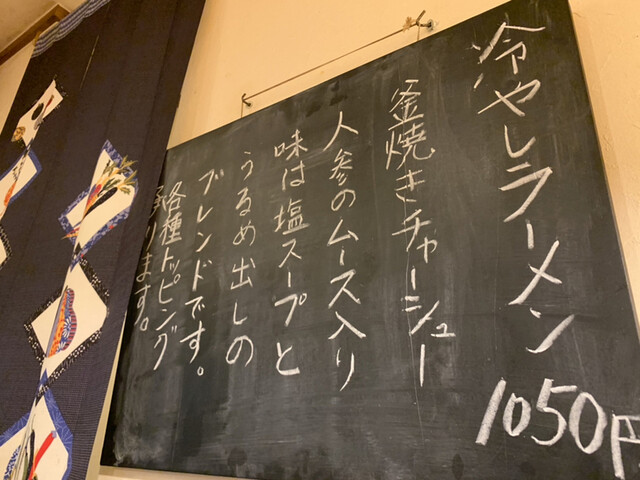 冷やしラーメン
1050円
釜焼きチャーシュー
人参のムース入り
味は塩スープと
うるめ出しの
ブレンドです。
各種トッピング
承ります。